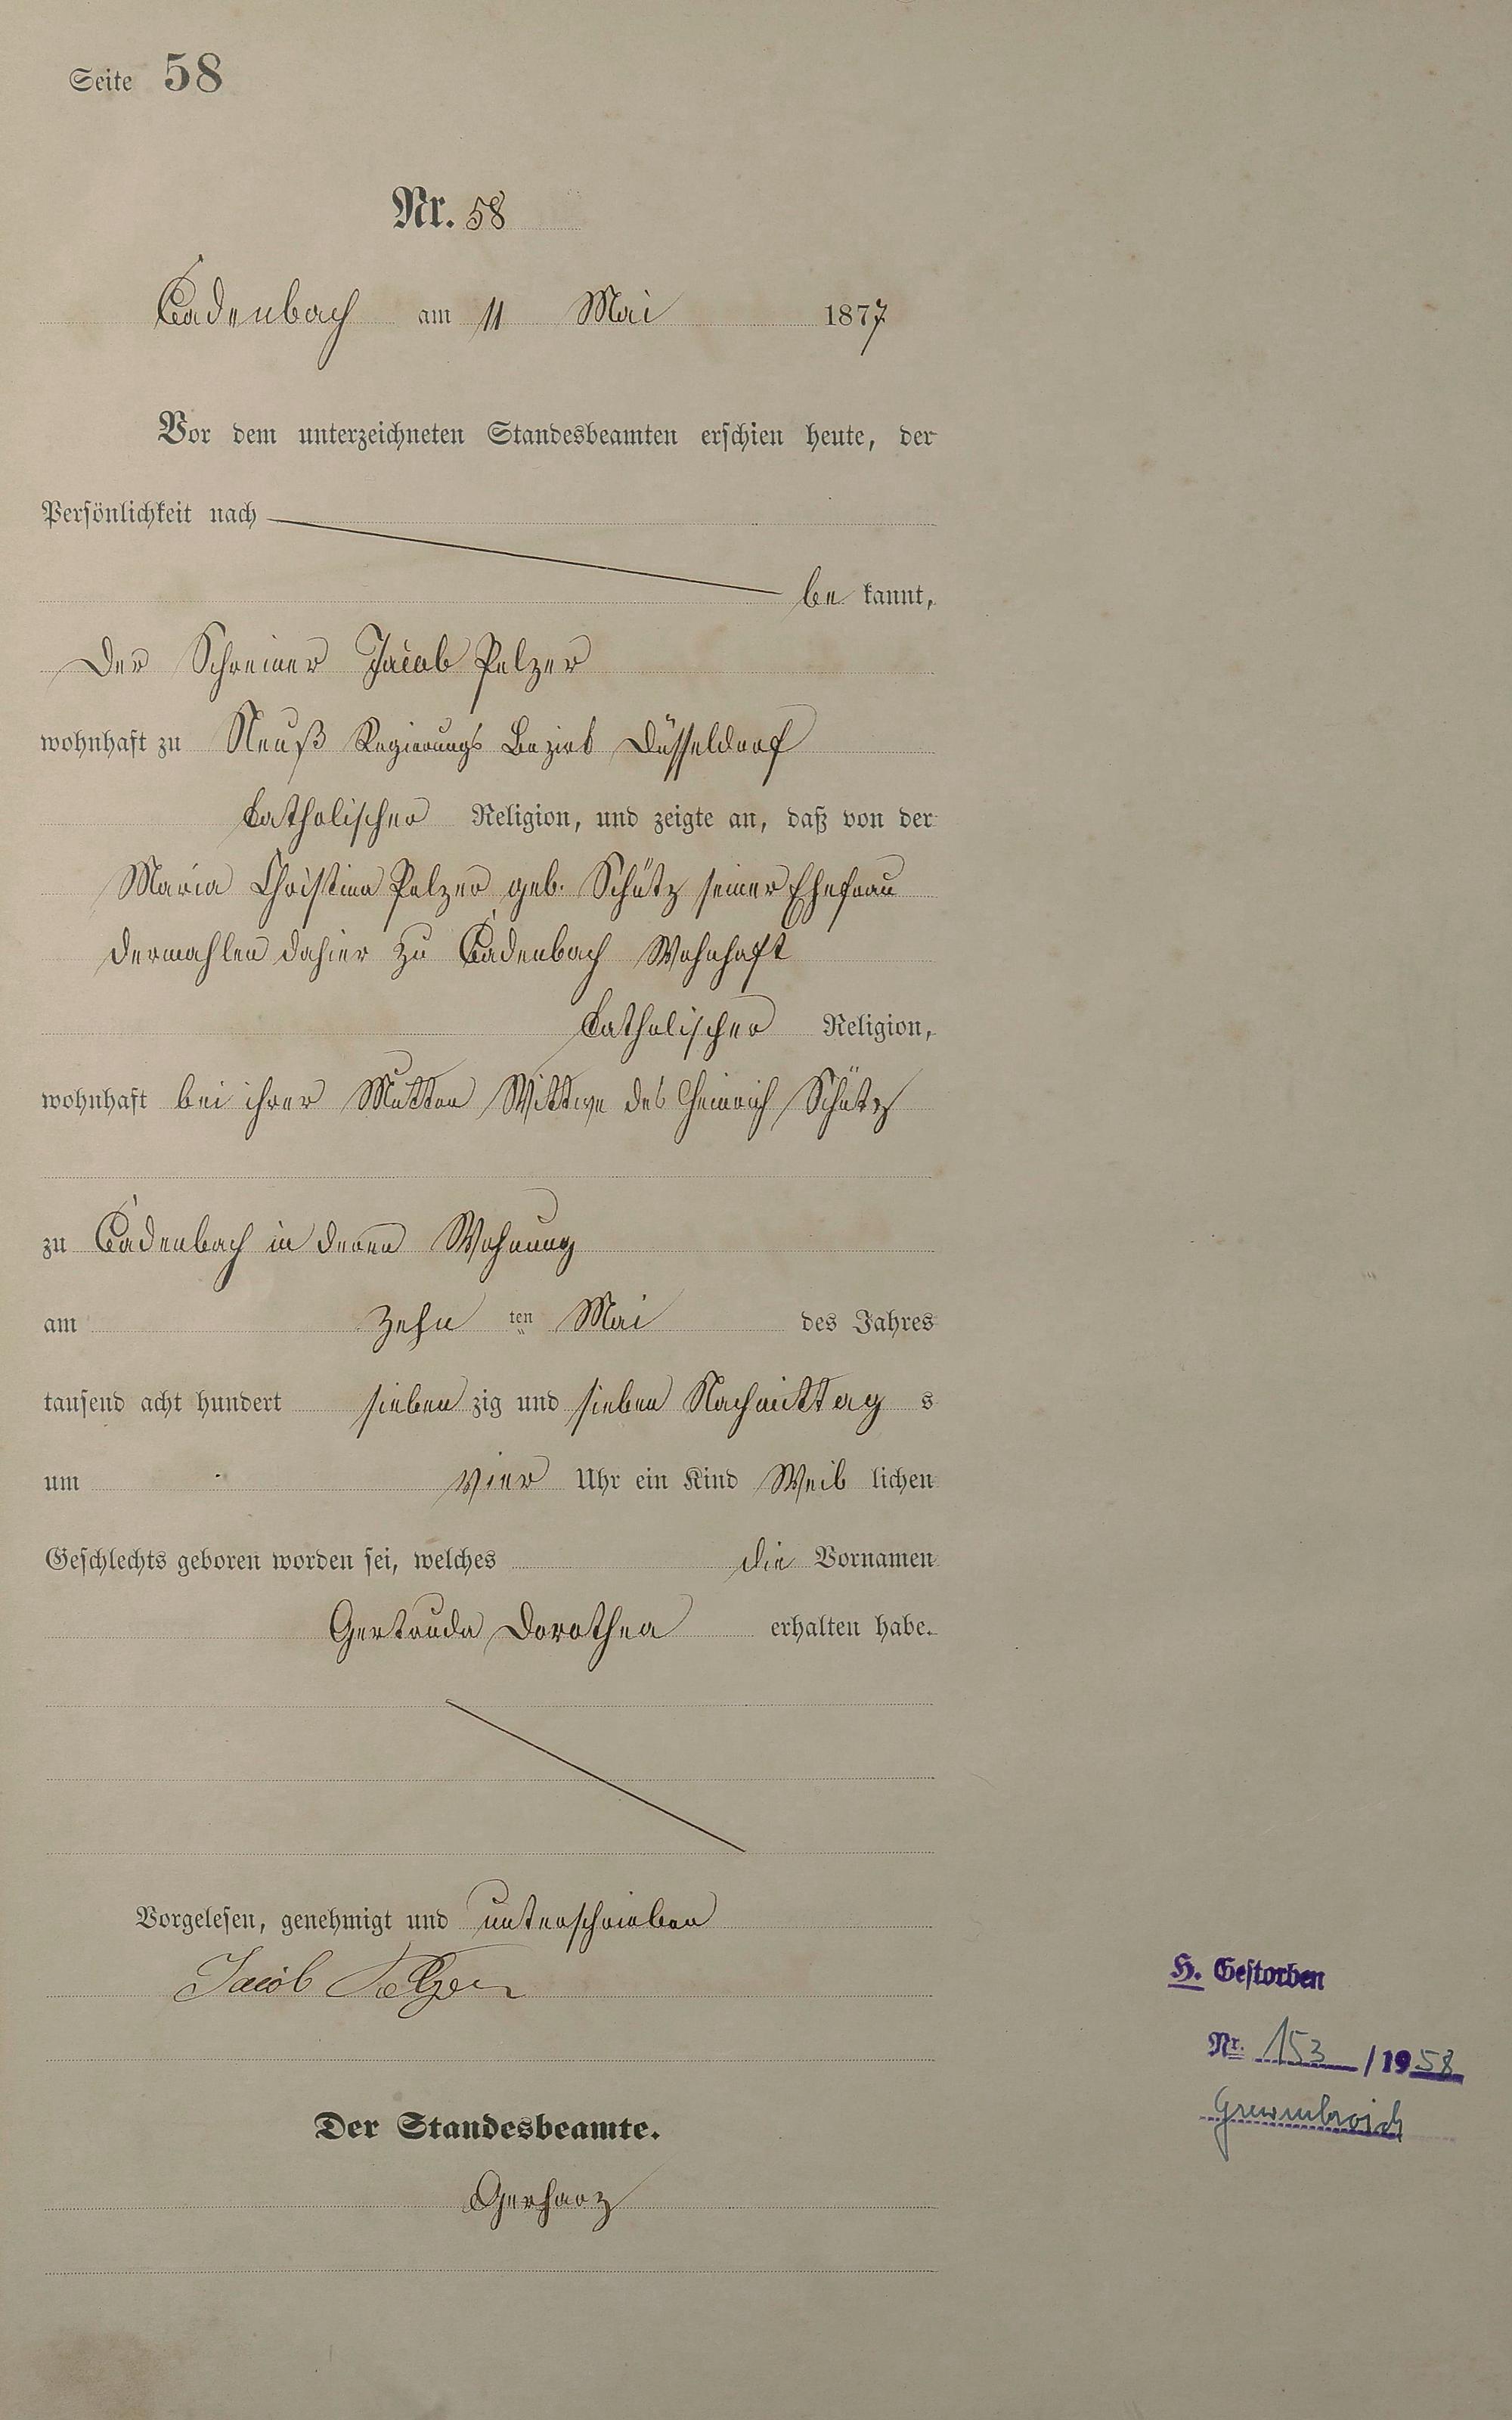 Seite 58
Nr. 58
Cadenbach am 11 Mai 1877
Vor dem unterzeichneten Standesbeamten erschien heute, der
Persönlichkeit nach
be kannt,
Der Schreiner Jacob Pelzer
wohnhaft zu Neuß Regierungs Bezirk Düsseldorf
Catholischer Religion, und zeigte an, daß von der
Maria Christina Pelzer geb. Schütz seiner Ehefrau
dermahlen dahier zu Cadenbach Wohnhaft
Catholischer Religion,
wohnhaft bei ihrer Mutter Wittwe des Heinrich Schütz
zu Cadenbach in deren Wohnung
am zehn ten Mai des Jahres
tausend acht hundert sieben zig und sieben Nachmittag s
um vier Uhr ein Kind Weib lichen
Geschlechts geboren worden sei, welches die Vornamen
Gertruda Dorothea erhalten habe.
Vorgelesen, genehmigt und unterschrieben
Jacob Pelzer
Der Standesbeamte.
Gerharz
H. Gestorben
Nr. 153 / 1958
Grevenbroich